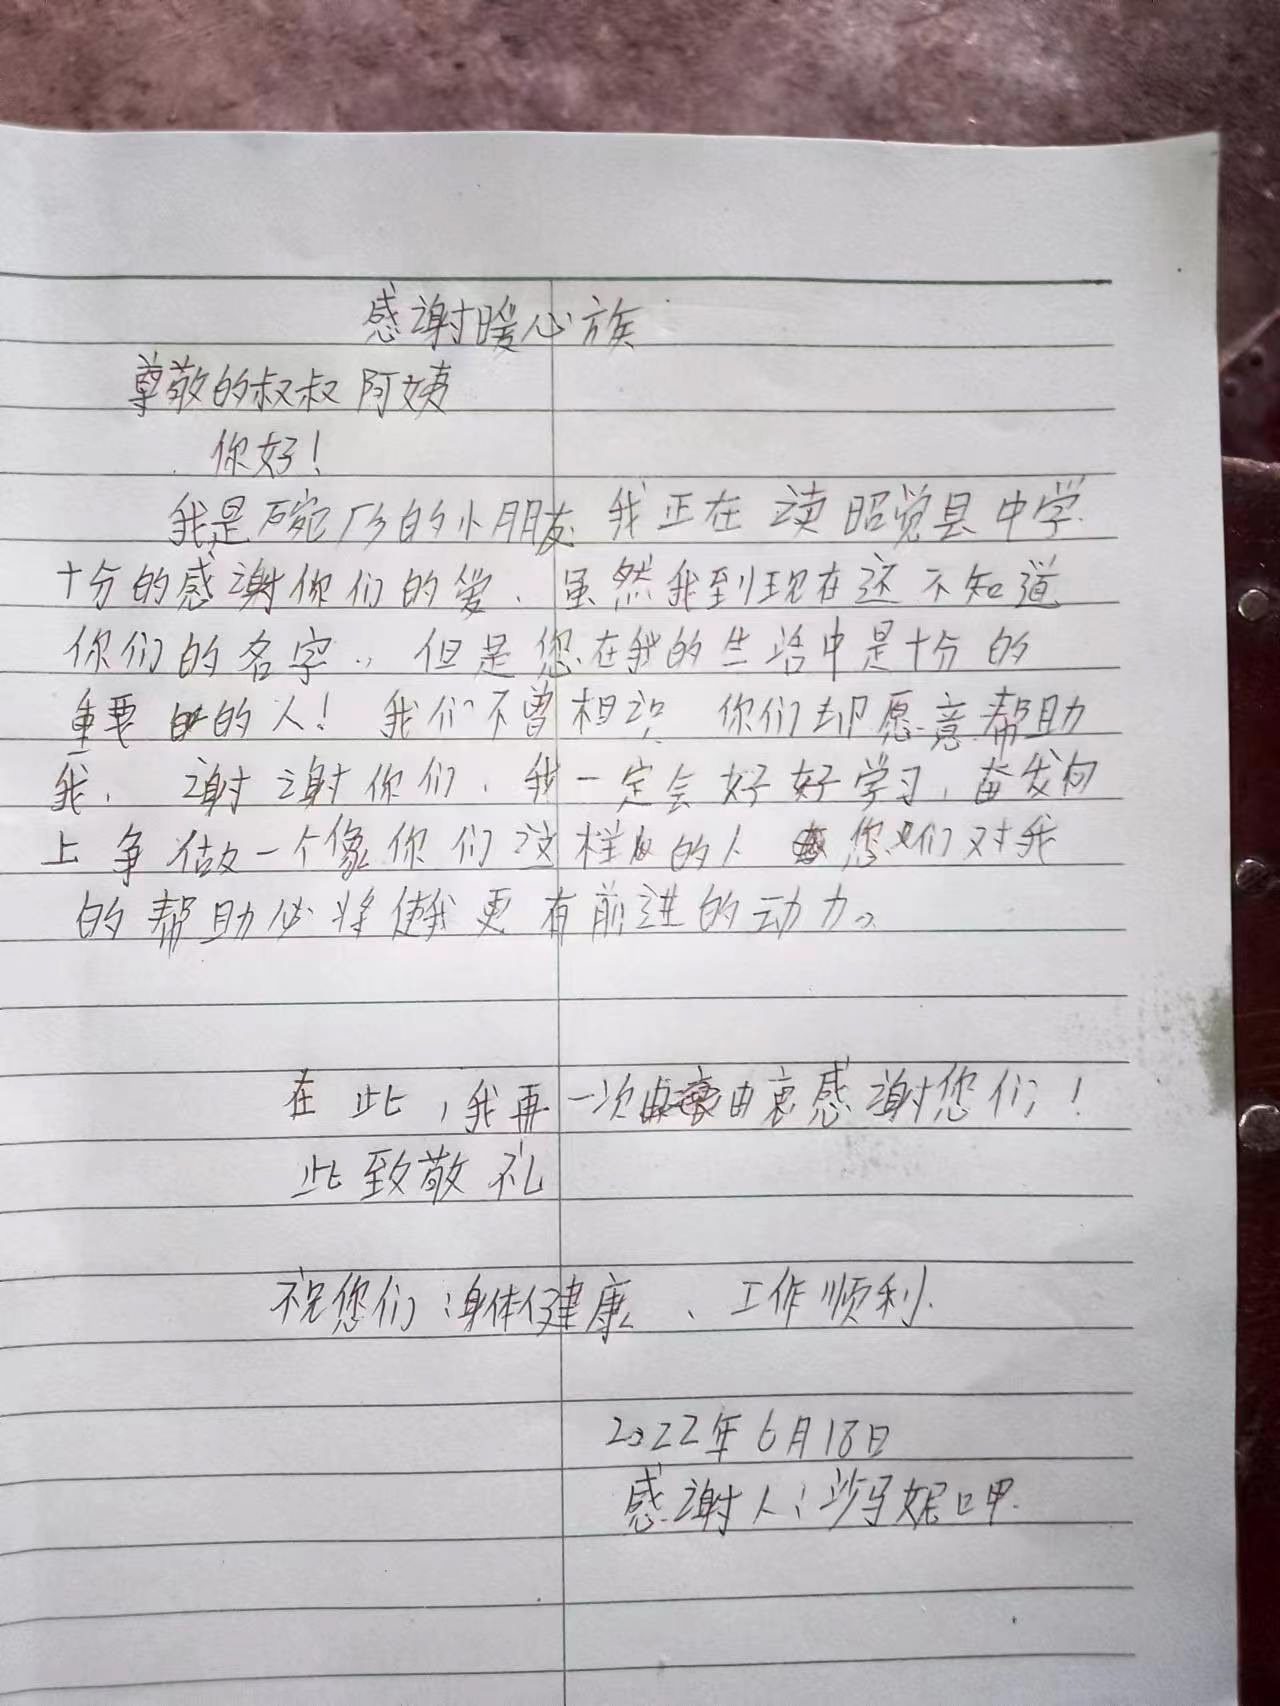 感谢暖心族
尊敬的叔叔阿姨
你好！
我是碗厂乡的小朋友 我正在读昭觉县中学.
十分的感谢你们的爱、虽然我到现在还不知道
你们的名字.，但是您在我的生活中是十分的
重要的人！我们不曾相识 你们却愿意帮助
我，谢谢你们，我一定会好好学习，奋发向
上争做一个像你们这样的人 您们对我
的帮助必将使我更有前进的动力。
在此，我再一次由衷感谢您们；！
此致敬礼
祝您们：身体健康、工作顺利.
2022年6月18日
感谢人：沙马妮呷.